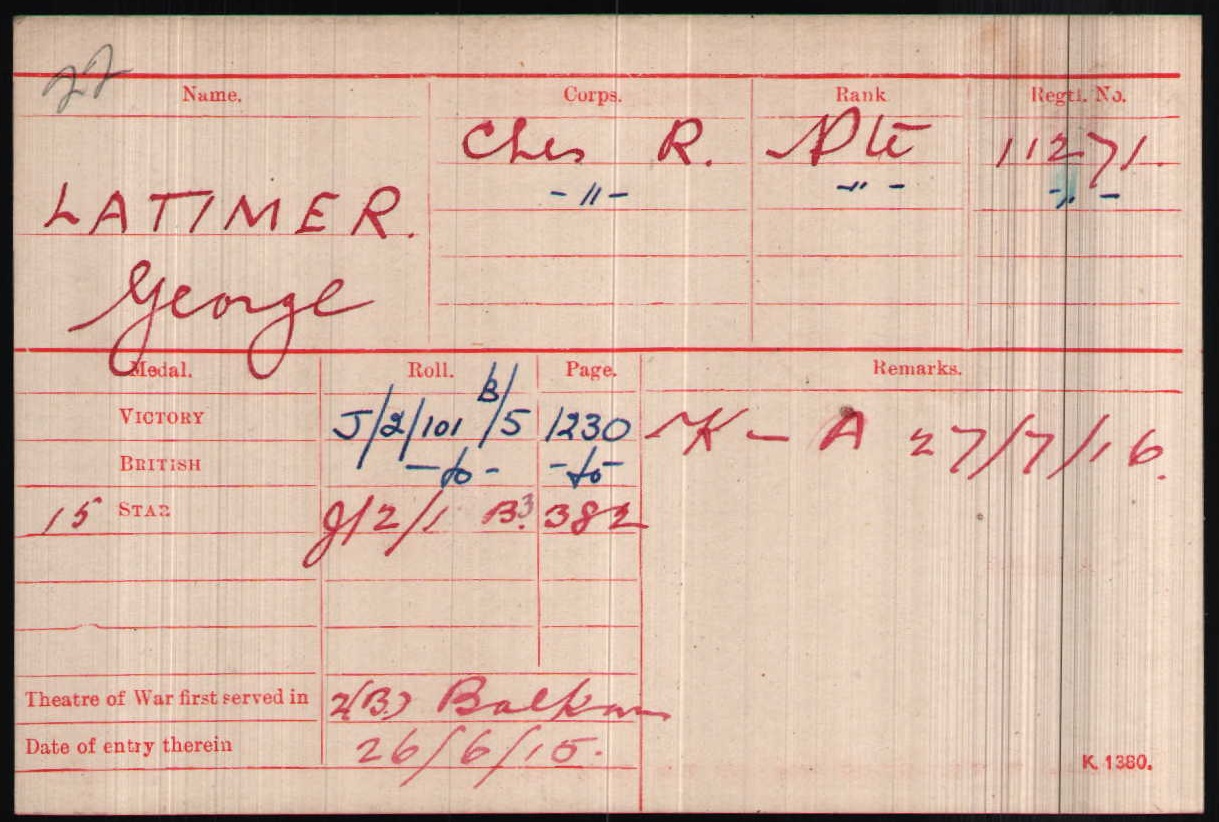 22
Name. Corps. Rank Regtl. No.
Ches R. Pte 11271.
-"- -"- -"-
LATIMER.
George
Medal. Roll. Page. Remarks.
VICTORY J/2/101 B/5 1230 K - A 27/7/16.
BRITISH -do- -do-
15 STAR J/2/1 B.3 382
Theatre of War first served in 2(B) Balkans
Date of entry therein 26/6/15.
K. 1380.